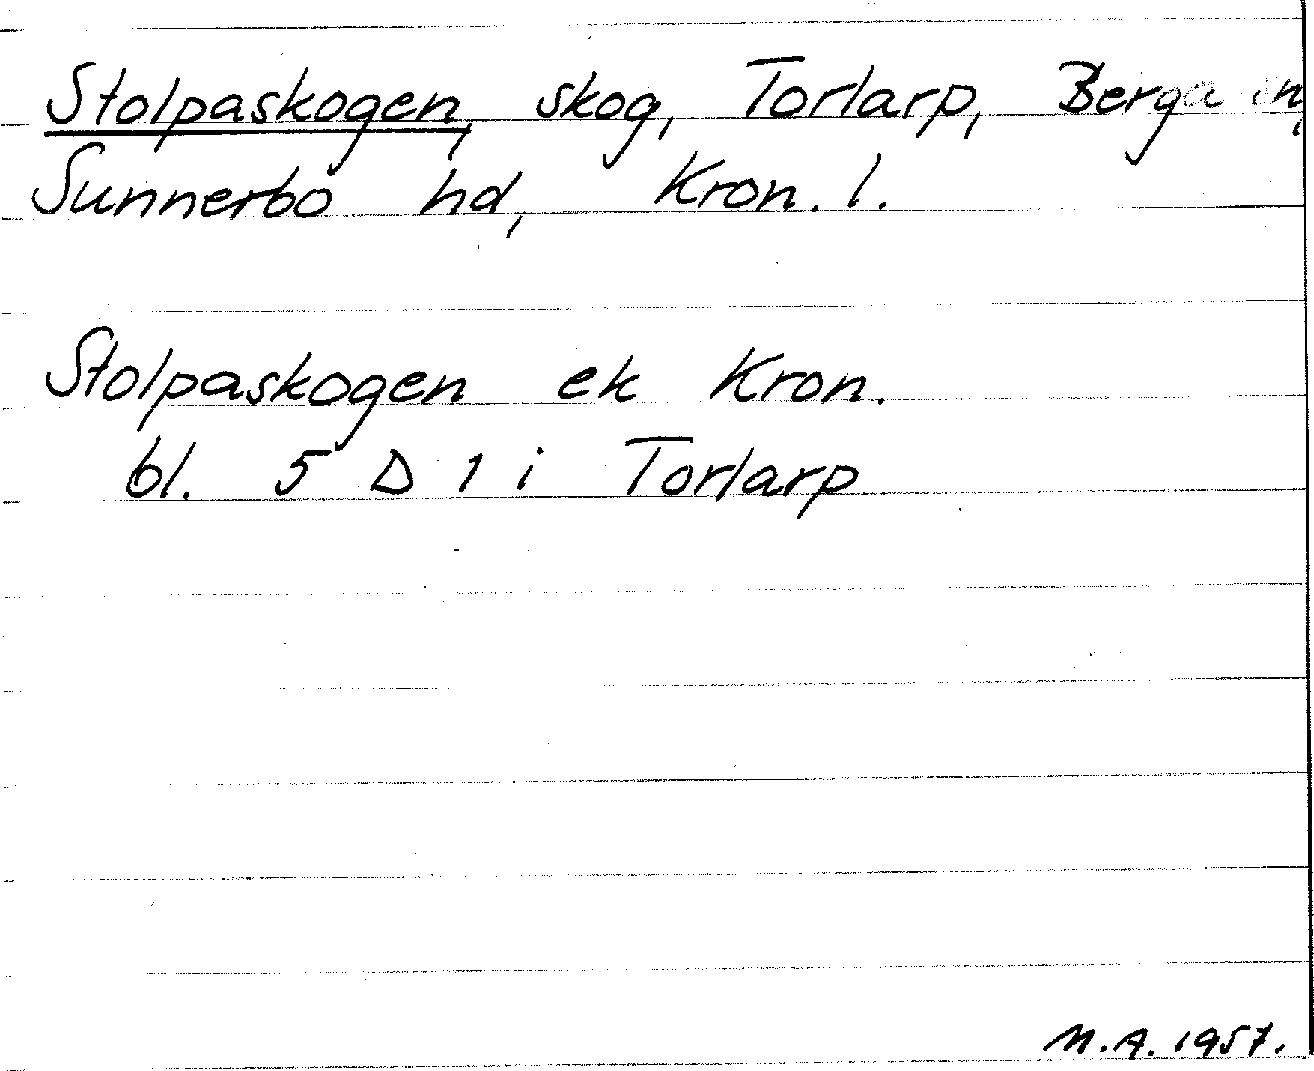 Stolpaskogen, skog, Torlarp, Berga sn,
Sunnerbo hd, Kron. l.
Stolpaskogen ek Kron.
bl. 5 D 1 i Torlarp
M.A. 1957.